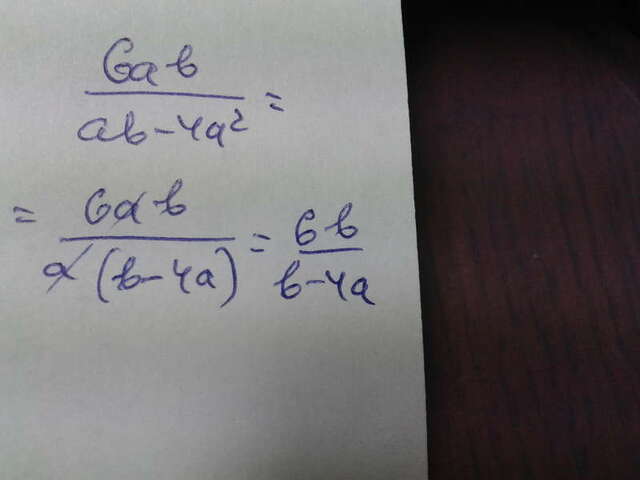 6ab/(ab-4a²) =
= 6ab/(a(b-4a)) = 6b/(b-4a)